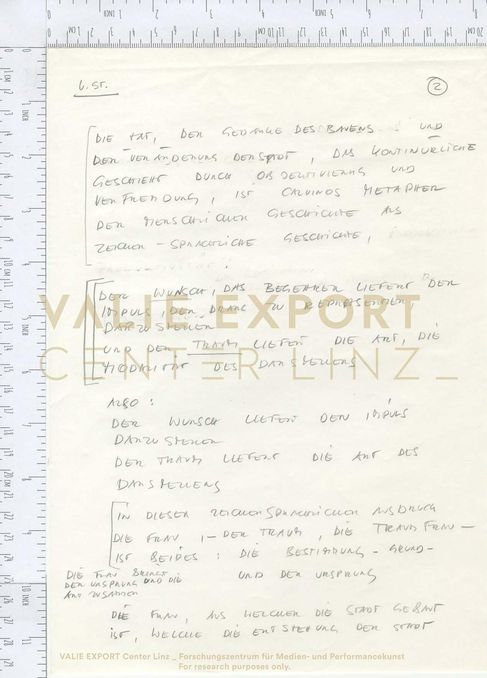 U. ST.
2
DIE ART, DER GEDANKE DES BAUENS UND
DER VERÄNDERUNG DER STADT, DAS KONTINUIERLICHE
GESCHIEHT DURCH OBJEKTIVIERUNG UND
VERFREMDUNG, IST CALVINOS METAPHER
DER MENSCHLICHEN GESCHICHTE ALS
ZEICHEN-SPRACHLICHE GESCHICHTE,
DER WUNSCH, DAS BEGEHREN LIEFERT DEN
IMPULS, DEN DRANG ZU REPRÄSENTIEREN
DARZUSTELLEN
UND DER TRAUM LIEFERT DIE ART, DIE
MODALITÄT DES DARSTELLENS
VALIE EXPORT
CENTER LINZ_
ALSO:
DER WUNSCH LIEFERT DEN IMPULS
DARZUSTELLEN
DER TRAUM LIEFERT DIE ART DES
DARSTELLENS
IN DIESER ZEICHENSPRACHLICHEN AUSDRUCK
DIE FRAU, - DER TRAUM, DIE TRAUMFRAU -
IST BEIDES: DIE BESTIMMUNG - GRUND -
UND DER URSPRUNG
DIE FRAU BRINGT
DEN URSPRUNG UND DIE
ART ZUSAMMEN
DIE FRAU, AUS WELCHER DIE STADT GEBAUT
IST, WELCHE DIE ENTSTEHUNG DER STADT
VALIE EXPORT Center Linz _ Forschungszentrum für Medien- und Performancekunst
For research purposes only.